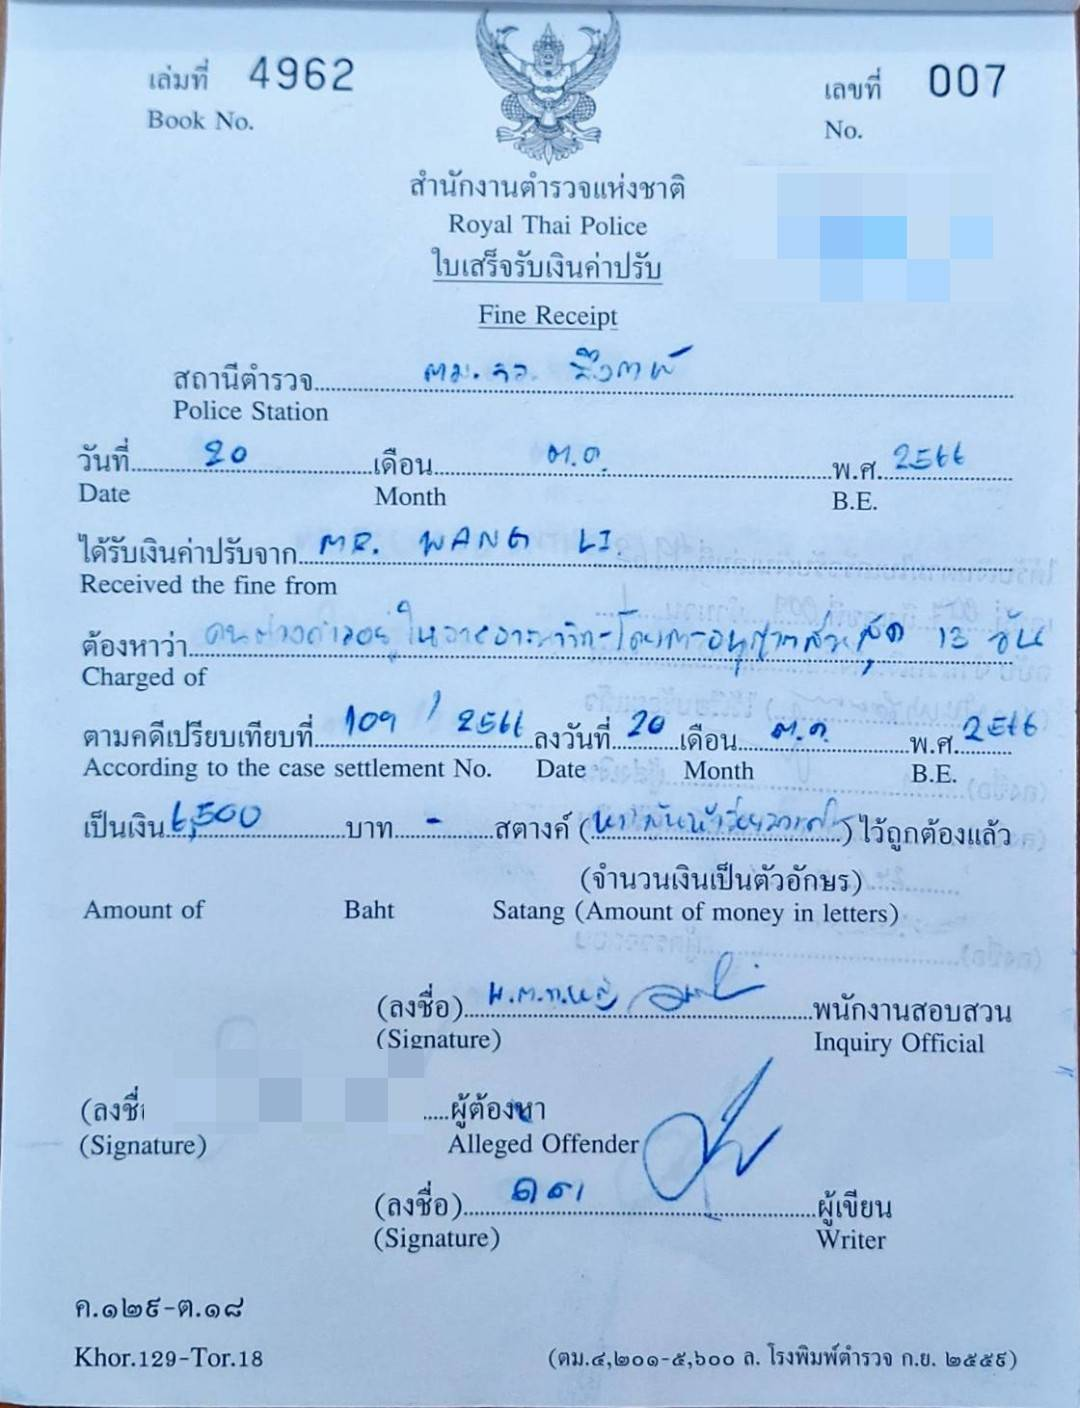 เล่มที่ 4962 เลขที่ 007
Book No. No.
สำนักงานตำรวจแห่งชาติ
Royal Thai Police
ใบเสร็จรับเงินค่าปรับ
Fine Receipt
สถานีตำรวจ ตม.จว.
Police Station
วันที่ 20 เดือน ต.ค. พ.ศ. 2566
Date Month B.E.
ได้รับเงินค่าปรับจาก MR. WANG LI
Received the fine from
ต้องหาว่า คนต่างด้าวอยู่ในราชอาณาจักรโดยการอนุญาตสิ้นสุด 13 วัน
Charged of
ตามคดีเปรียบเทียบที่ 109 / 2566 ลงวันที่ 20 เดือน ต.ค. พ.ศ. 2566
According to the case settlement No. Date Month B.E.
เป็นเงิน 6,500 บาท - สตางค์ (หกพันห้าร้อยบาทถ้วน) ไว้ถูกต้องแล้ว
(จำนวนเงินเป็นตัวอักษร)
Amount of Baht Satang (Amount of money in letters)
(ลงชื่อ) พ.ต.ท.หญิง พนักงานสอบสวน
(Signature) Inquiry Official
(ลงชื่ ผู้ต้องหา
(Signature) Alleged Offender
(ลงชื่อ) ผู้เขียน
(Signature) Writer
ค.๑๒๙-ต.๑๘
Khor.129-Tor.18 (ตม.๔,๒๐๑-๕,๖๐๐ ล. โรงพิมพ์ตำรวจ ก.ย. ๒๕๕๙)